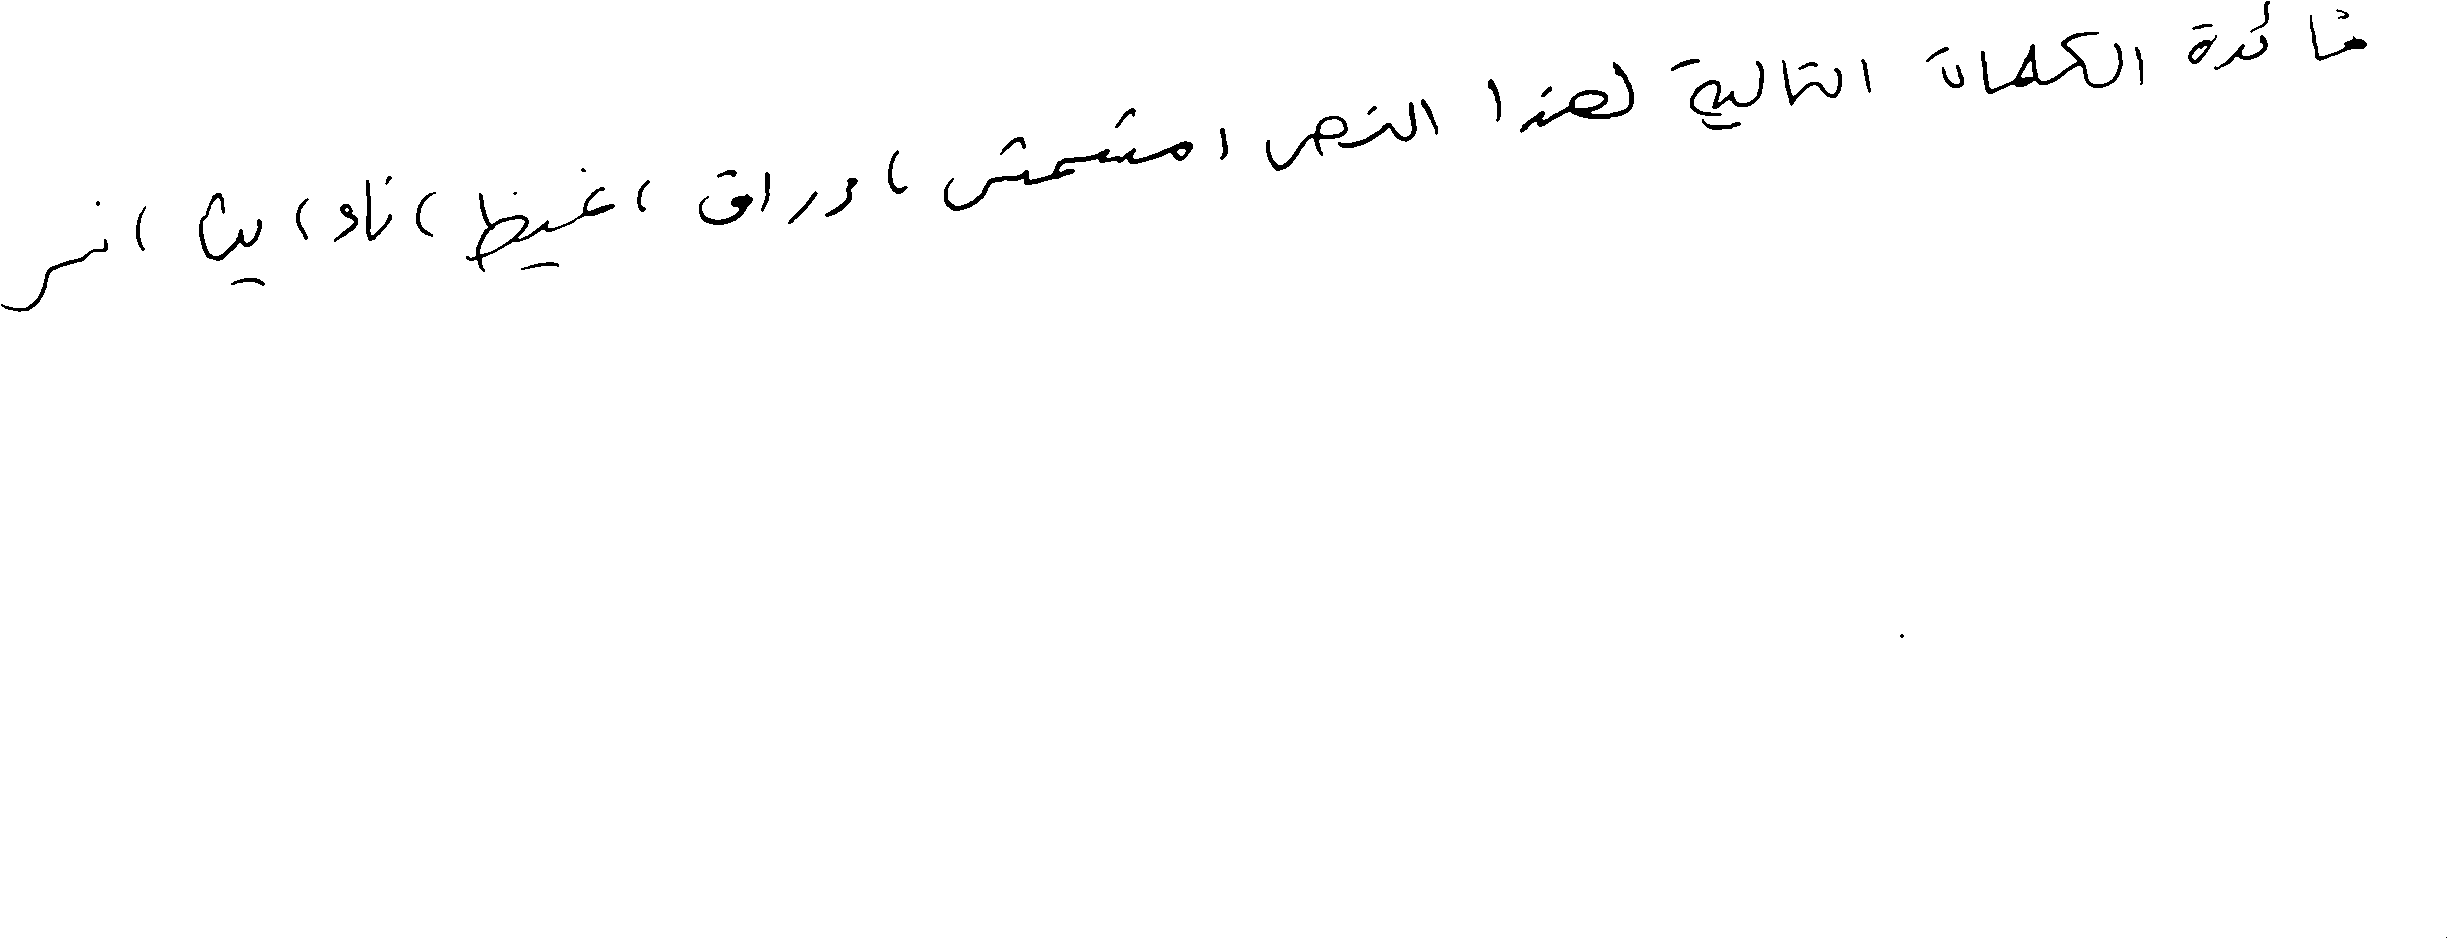 فائدة الكلمات التالية لهذا النص، مشمش، اوراق، غيظ، ناد، ليث، انس